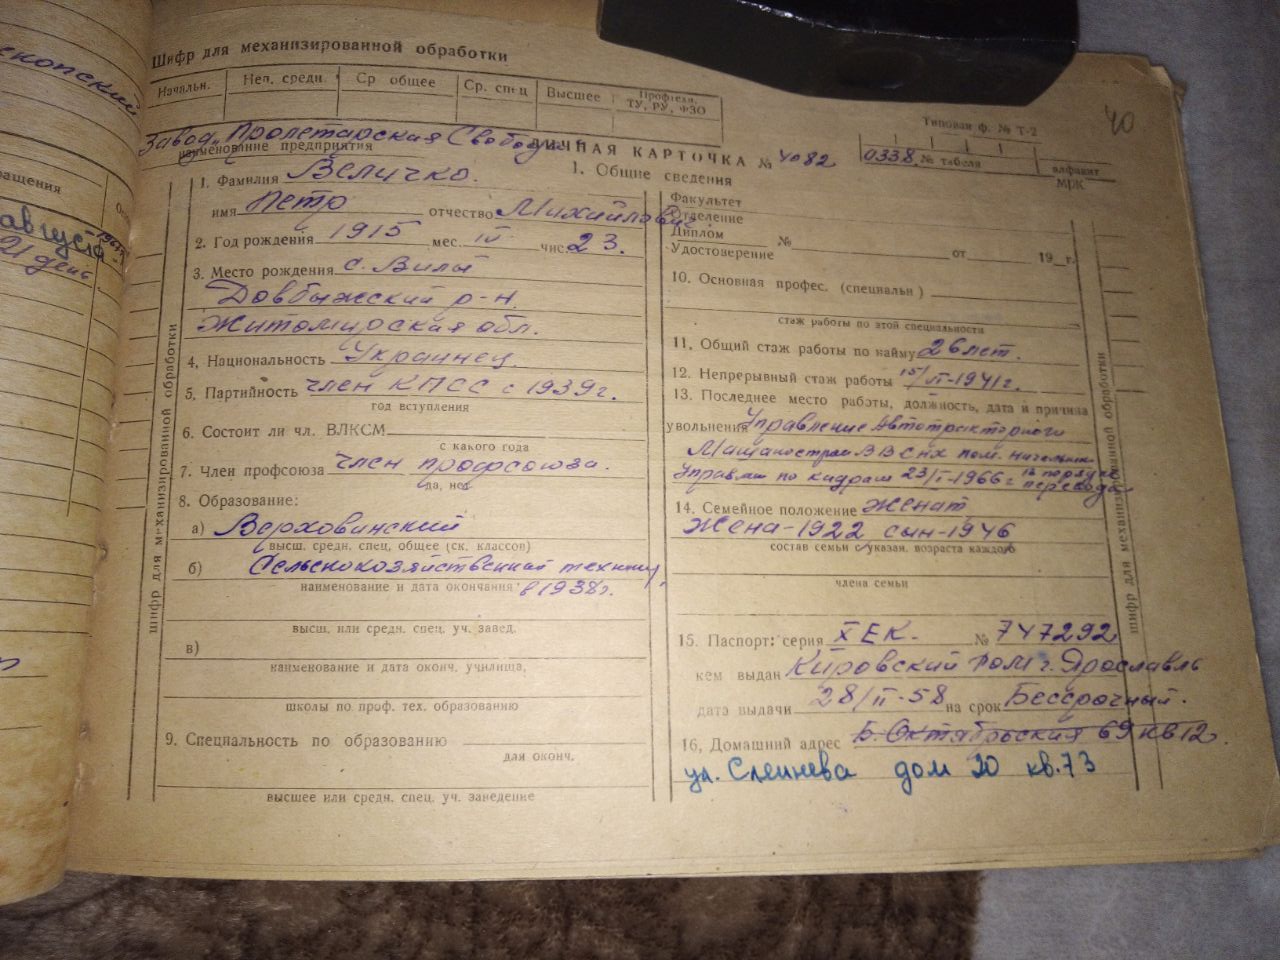 Шифр для механизированной обработки
Начальн. Неп. средн. Ср общее Ср. спец Высшее Профтехн. ТУ, РУ, ФЗО
Типовая ф. № Т-2
40
Завод „Пролетарская Свобода"
наименование предприятия
ЛИЧНАЯ КАРТОЧКА № 4082
0338 № табеля
алфавит
МРЖ
1. Общие сведения
1. Фамилия Величко.
имя Петр отчество Михайлович
2. Год рождения 1915 мес. IV чис. 23.
3. Место рождения с. Вилы
Довбыжский р-н.
Житомирская обл.
4, Национальность Украинец.
5. Партийность член КПСС с 1939г.
год вступления
6. Состоит ли чл. ВЛКСМ
с какого года
7. Член профсоюза член профсоюза.
да, нет
8. Образование:
а) Верховинский
высш. средн. спец, общее (ск. классов)
б) Сельскохозяйственный техникум,
наименование и дата окончания в 1938г.
высш. или средн. спец. уч. завед.
в)
наименование и дата оконч. училища,
школы по проф. тех. образованию
9. Специальность по образованию
для оконч.
высшее или средн. спец. уч. заведение
Факультет
Отделение
Диплом №
Удостоверение от 19 г.
10. Основная профес. (специальн)
стаж работы по этой специальности
11, Общий стаж работы по найму 26 лет.
12. Непрерывный стаж работы 15/VI-1941г.
13. Последнее место работы, должность, дата и причина
увольнения Управление Автотракторного
ВВСНХ пом. начальник
Управл по кадрам 23/I-1966г в порядке
перевода
14. Семейное положение женат
Жена-1922 сын-1946
состав семьи с указан. возраста каждого
члена семьи
15. Паспорт: серия X ЕК. № 747292
кем выдан Кировский РОМ г. Ярославль
дата выдачи 28/II-58 на срок Бессрочный.
16, Домашний адрес Б. Октябрьская 69 кв 12
ул. Слепнева дом 20 кв. 73
шифр для механизированной обработки
шифр для механизированной обработки
ращения
августа
21 день